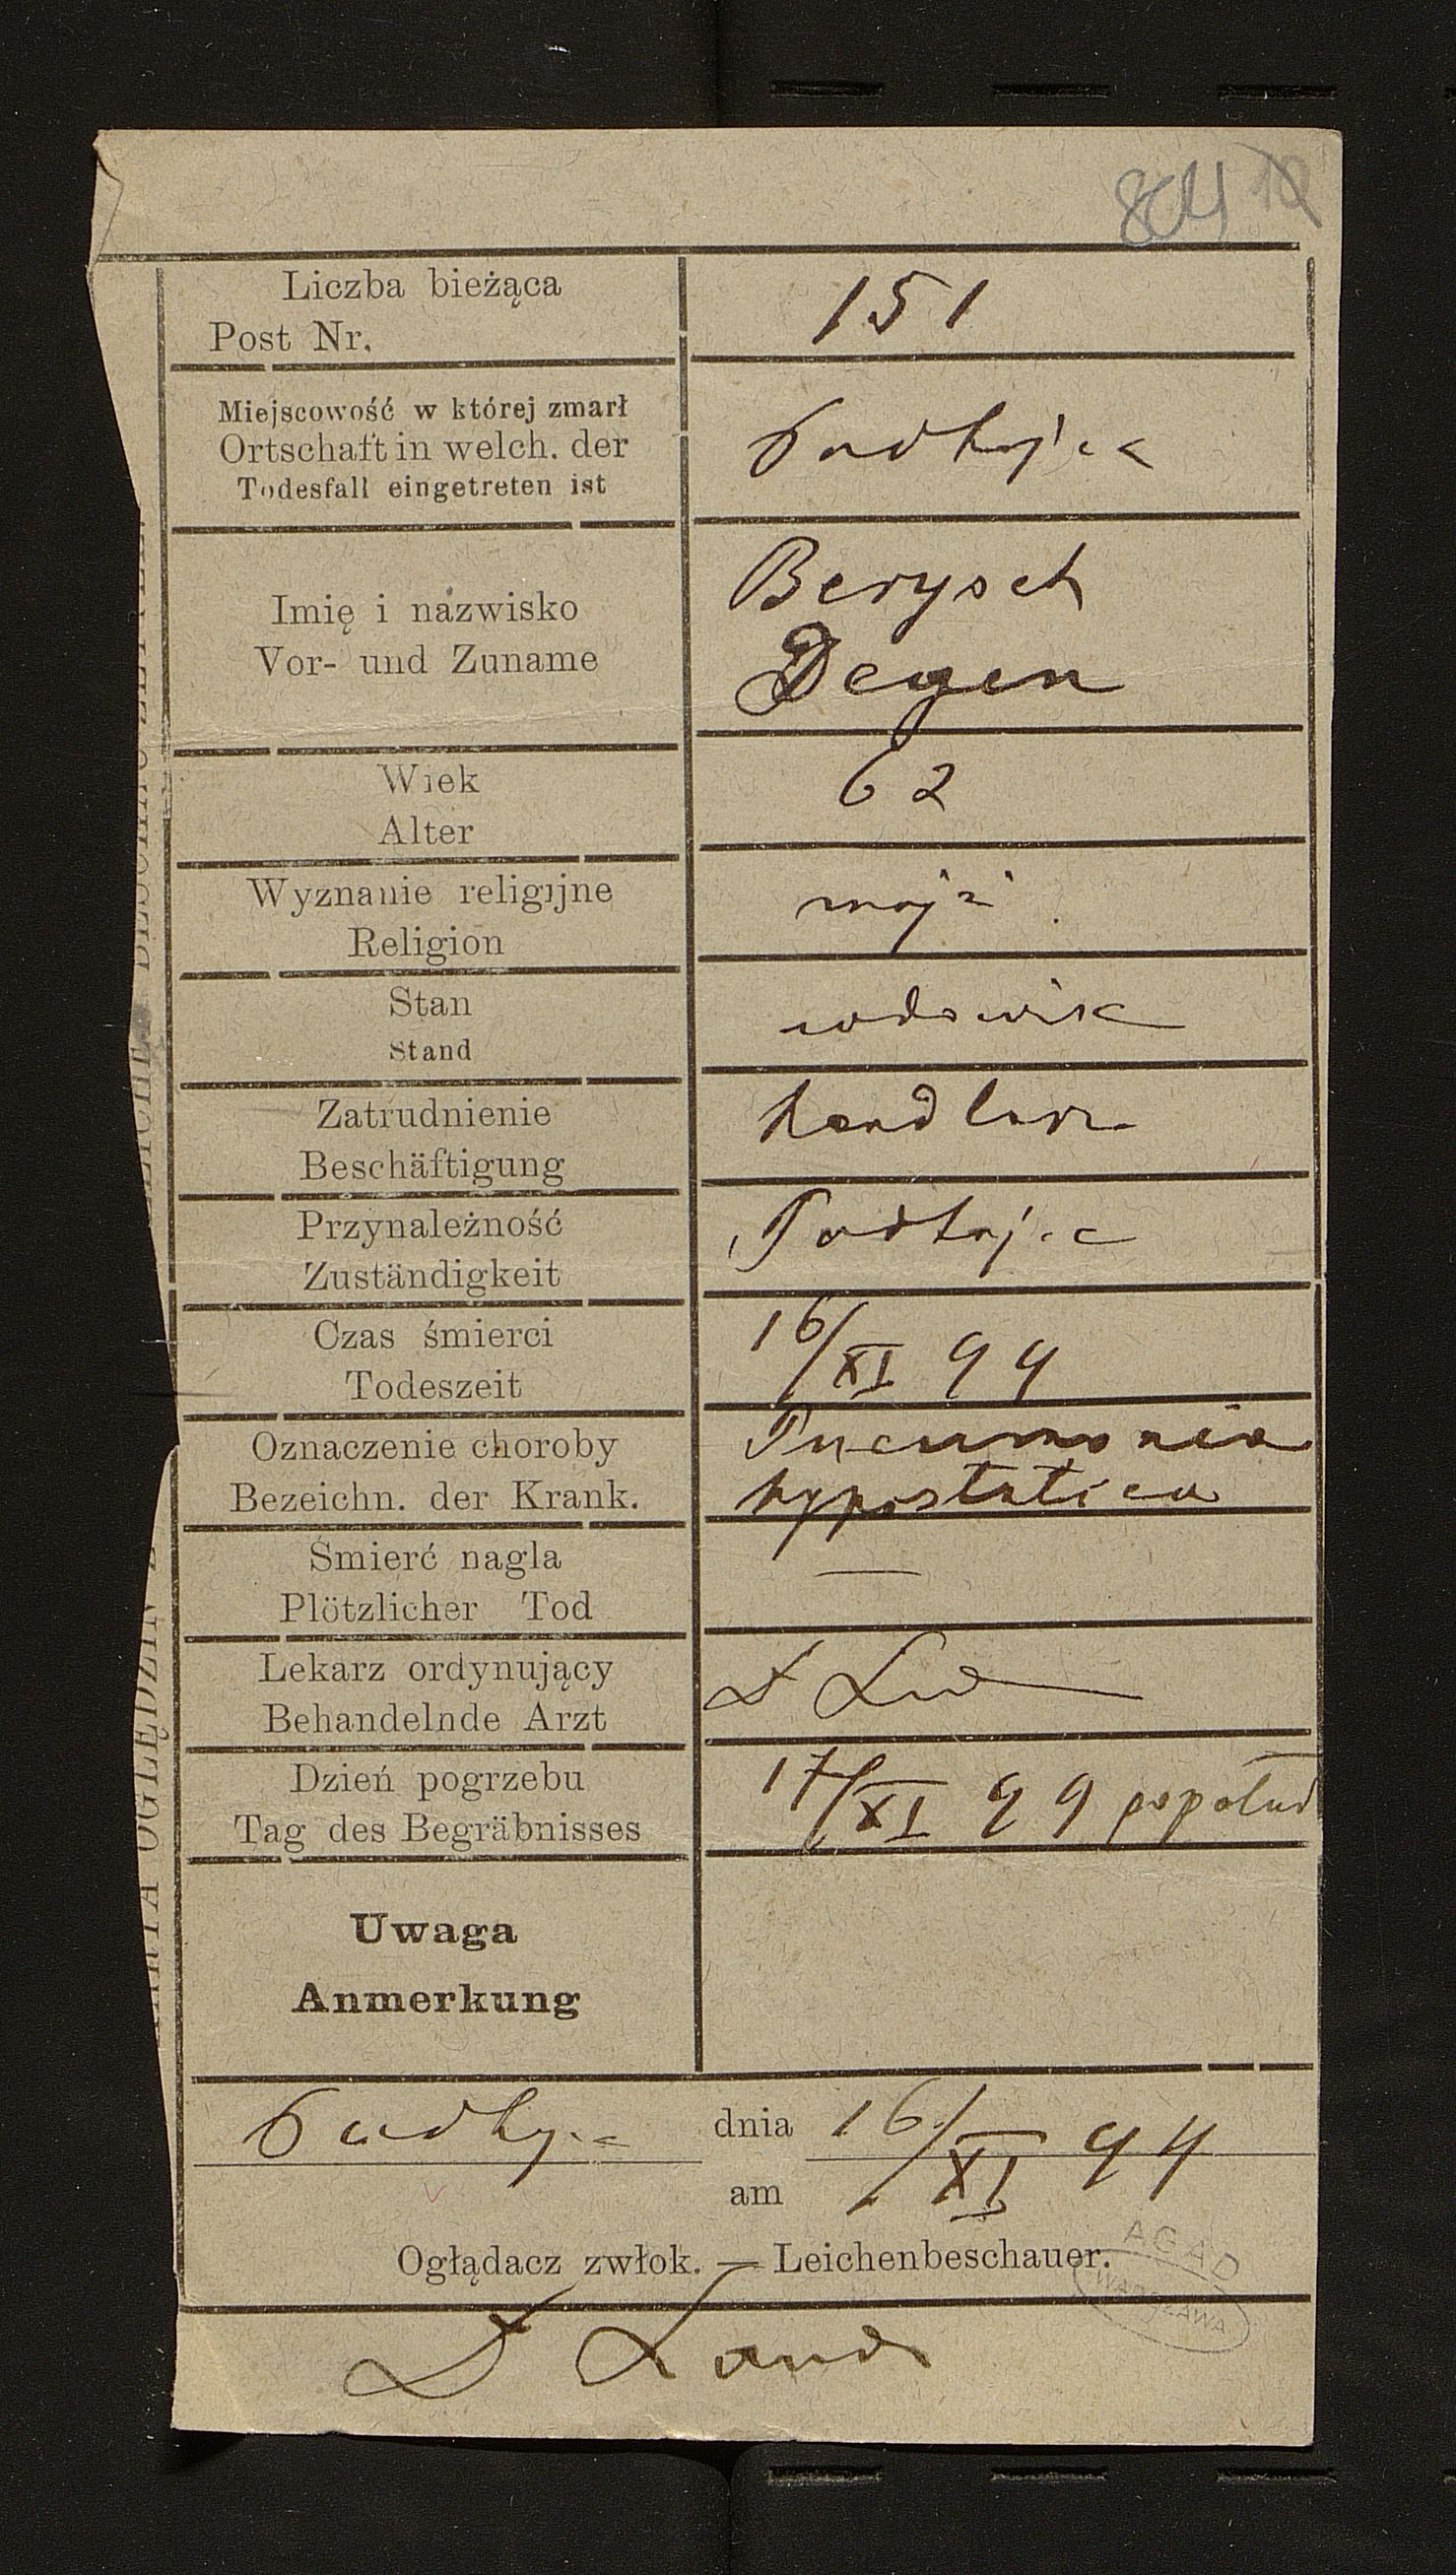 804 12
Liczba bieżąca
Post Nr.
151
Miejscowość w której zmarł
Ortschaft in welch. der
Todesfall eingetreten ist
Podhajce
Imię i nazwisko
Vor- und Zuname
Berysch
Degen
Wiek
Alter
62
Wyznanie religijne
Religion
mojż
Stan
Stand
wdowiec
Zatrudnienie
Beschäftigung
handlarz
Przynależność
Zuständigkeit
Podhajce
Czas śmierci
Todeszeit
16/XI 99
Oznaczenie choroby
Bezeichn. der Krank.
Pneumonia
hypostatica
Śmierć nagla
Plötzlicher Tod
—
Lekarz ordynujący
Behandelnde Arzt
Dzień pogrzebu
Tag des Begräbnisses
17/XI 99 popołud
Uwaga
Anmerkung
Podhajce dnia 16/XI 99
am
Oglądacz zwłok. — Leichenbeschauer.
D Land
AGAD
WARSZAWA